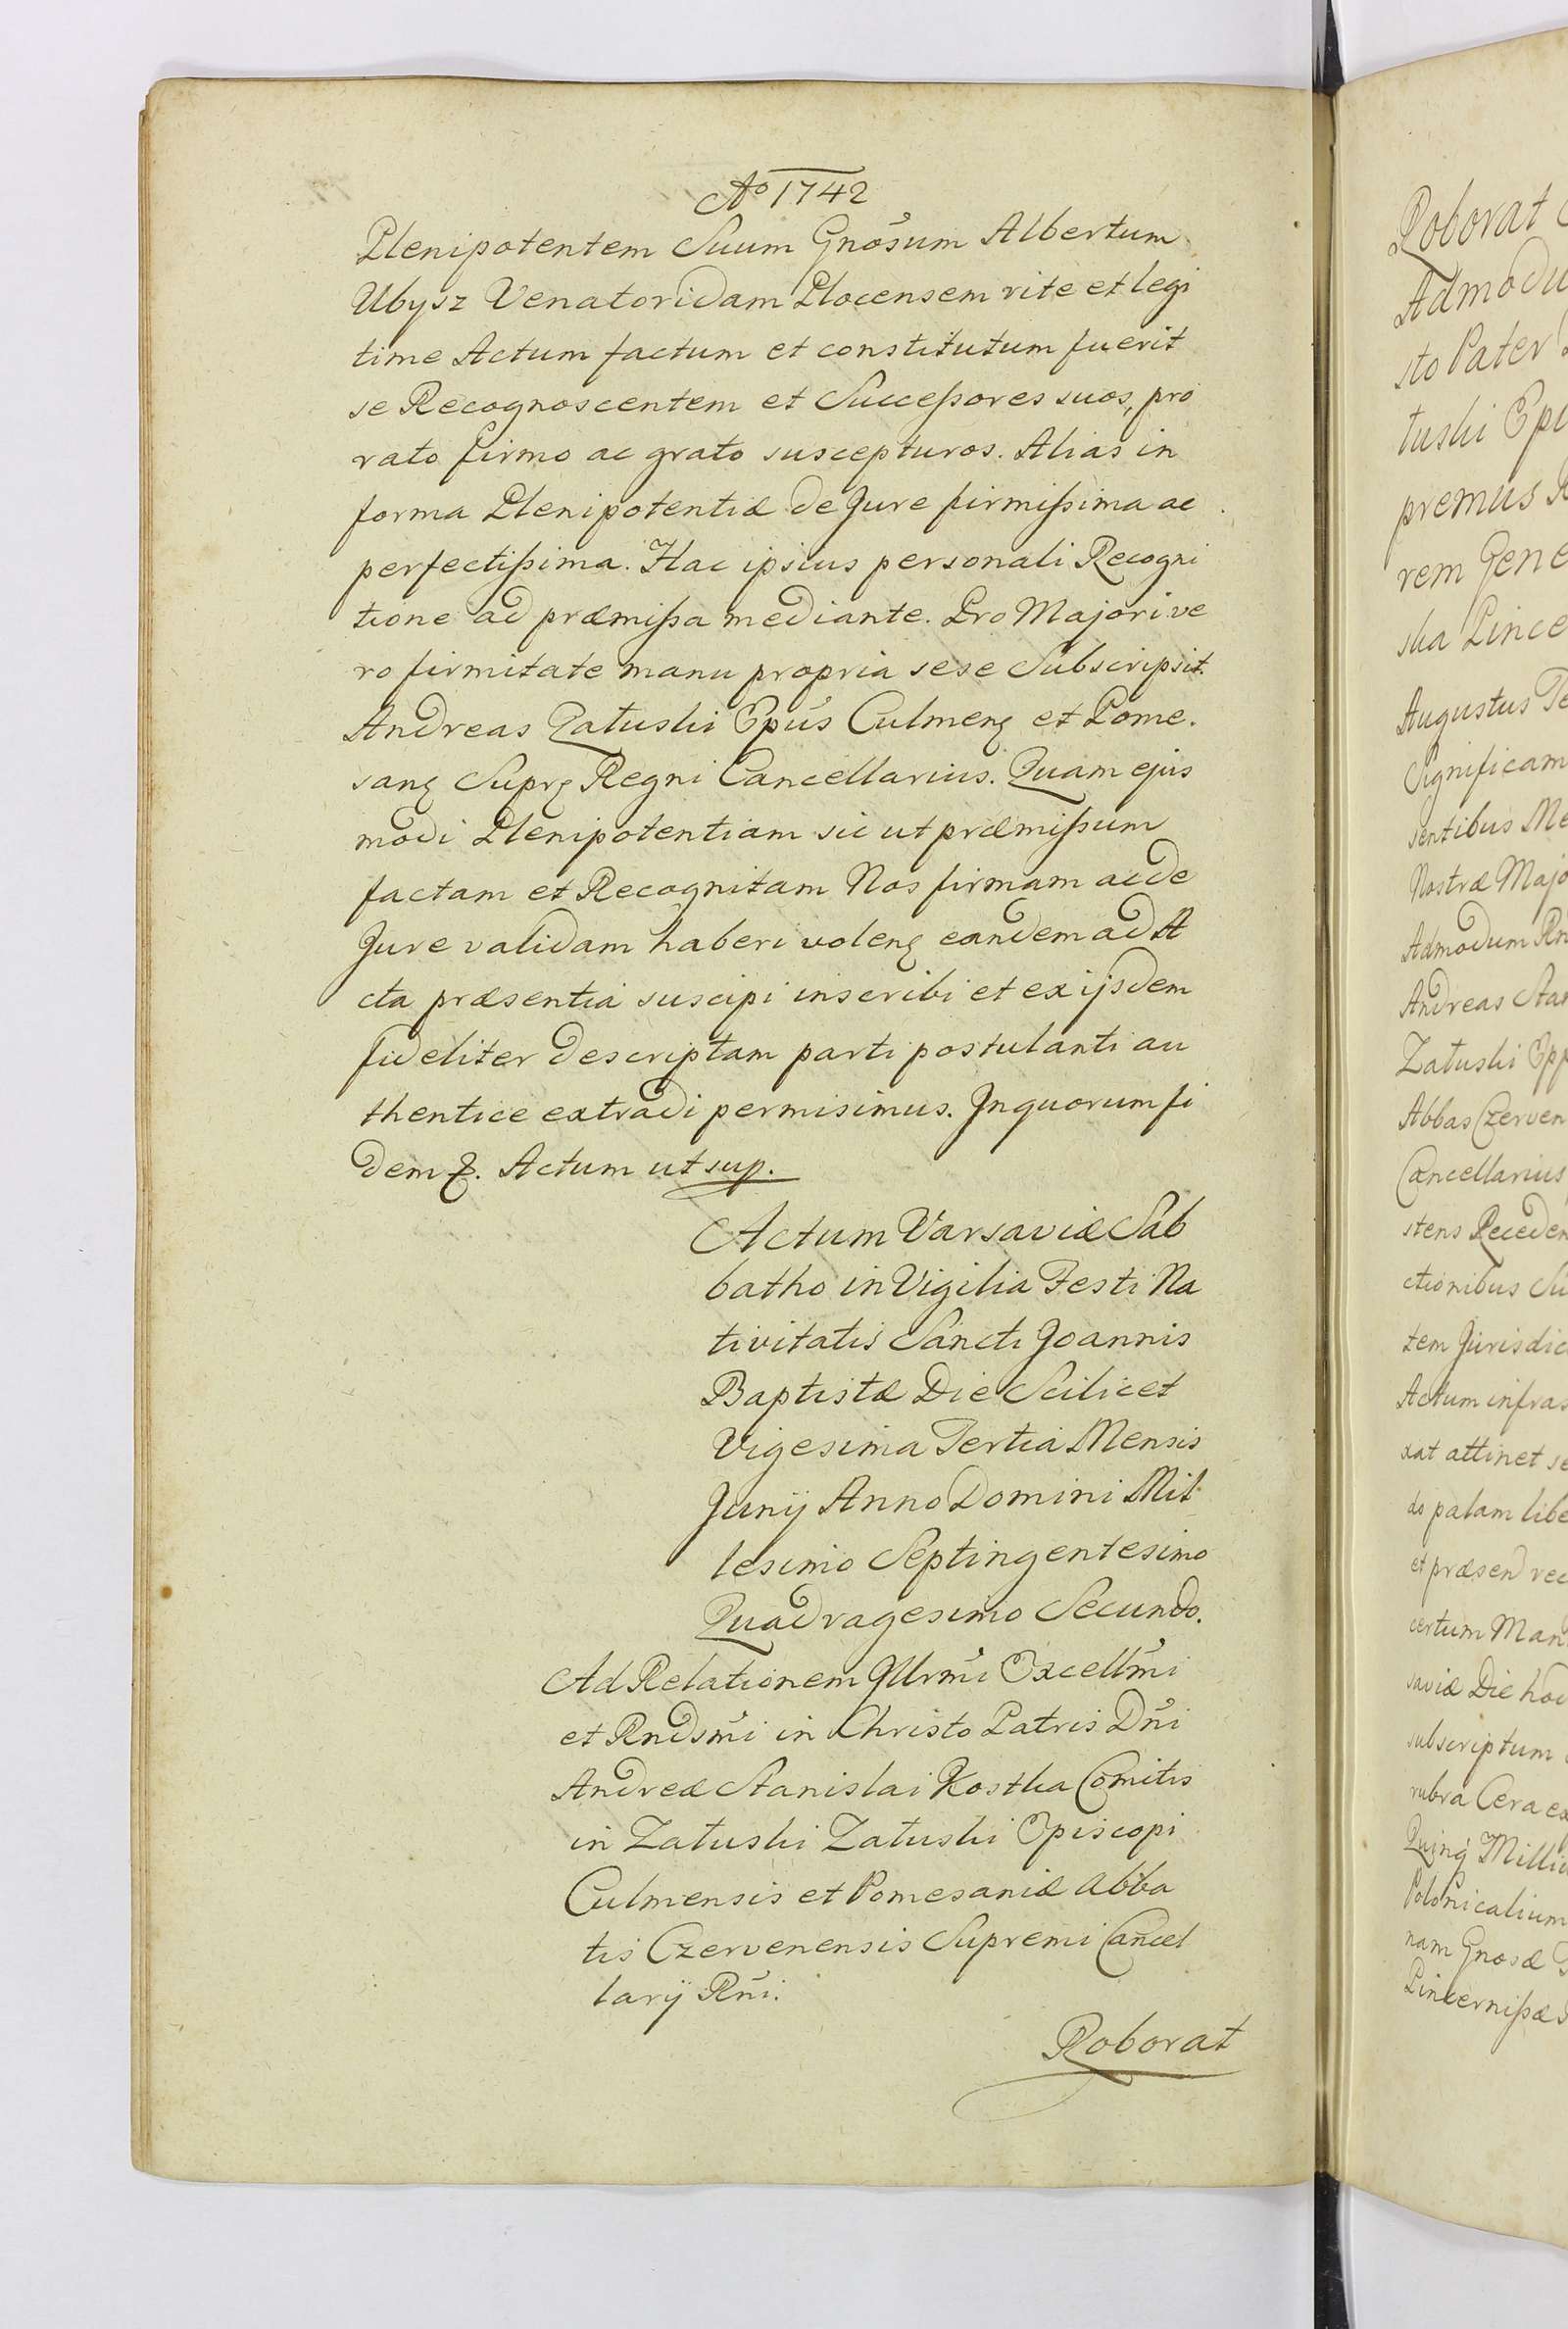 Ao 1742
Plenipotentem Suum Gnosum Albertum
Ubysz Venatoridam Plocensem rite et legi
time Actum factum et constitutum fuerit
se Recognoscentem et Successores suos, pro
rato firmo ac grato suscepturos. Alias in
forma Plenipotentiæ de Jure firmissima ac
perfectissima. Hac ipsius personali Recogni
tione ad præmissa mediante. Pro Majori ve
ro firmitate manu propria sese Subscripsit.
Andreas Załuski Epus Culmen et Pome.
san Supr Regni Cancellarius. Quam ejus
modi Plenipotentiam sic ut præmissum
factam et Recognitam Nos firmam ac de
Jure validam haberi volen eandem ad A
cta præsentia suscipi inscribi et ex ijsdem
fideliter descriptam parti postulanti au
thentice extradi permisimus. In quorum fi
dem &. Actum ut sup.
Actum Varsaviæ Sab
batho in Vigilia Festi Na
tivitatis Sancti Joannis
Baptistæ Die Scilicet
Vigesima Tertia Mensis
Junij Anno Domini Mil
lesimo Septingentesimo
Quadragesimo Secundo.
Ad Relationem Illrmi Excellmi
et Rndsmi in Christo Patris Dni
Andreæ Stanislai Kostka Comitis
in Załuski Załuski Episcopi
Culmensis et Pomesaniæ Abba
tis Czervenensis Supremi Cancel
larij Rni.
Roborat
Roborat
Admodu
sto Pater
łuski Ep
premus R
rem Gene
ska Pince
Augustus Te
Significam
sentibus Me
Nostræ Majo
Admodum Rn
Andreas Sta
Załuski Epp
Abbas Czerven
Cancellarius
stens Receden
ctionibus Su
tem Jurisdic
Actum infras
xat attinet se
do palam libe
et præsen rec
certum Man
saviæ Die hod
subscriptum
rubra Cera ex
Quinq Milli
Polonicalium
nam Gnosæ
Pincernissæ